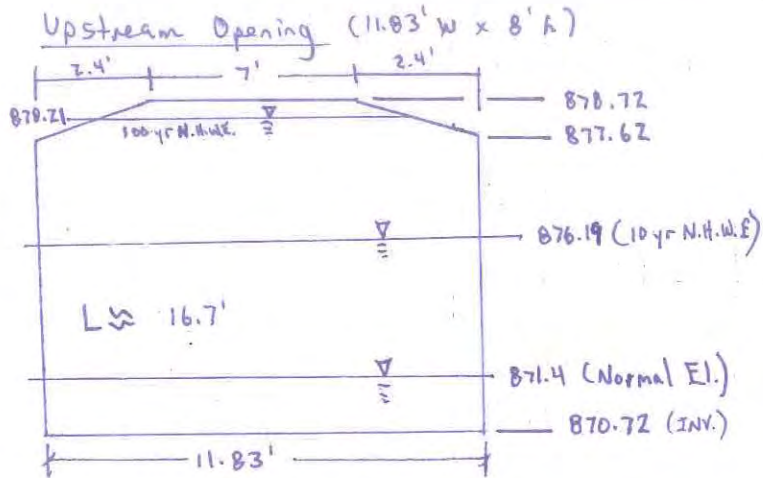 Upstream Opening (11.83' W x 8' h)
2.4' 7' 2.4'
878.72
878.21
100-yr N.H.W.E.
877.62
876.19 (10 yr N.H.W.E)
L ≈ 16.7'
871.4 (Normal El.)
870.72 (INV.)
11.83'